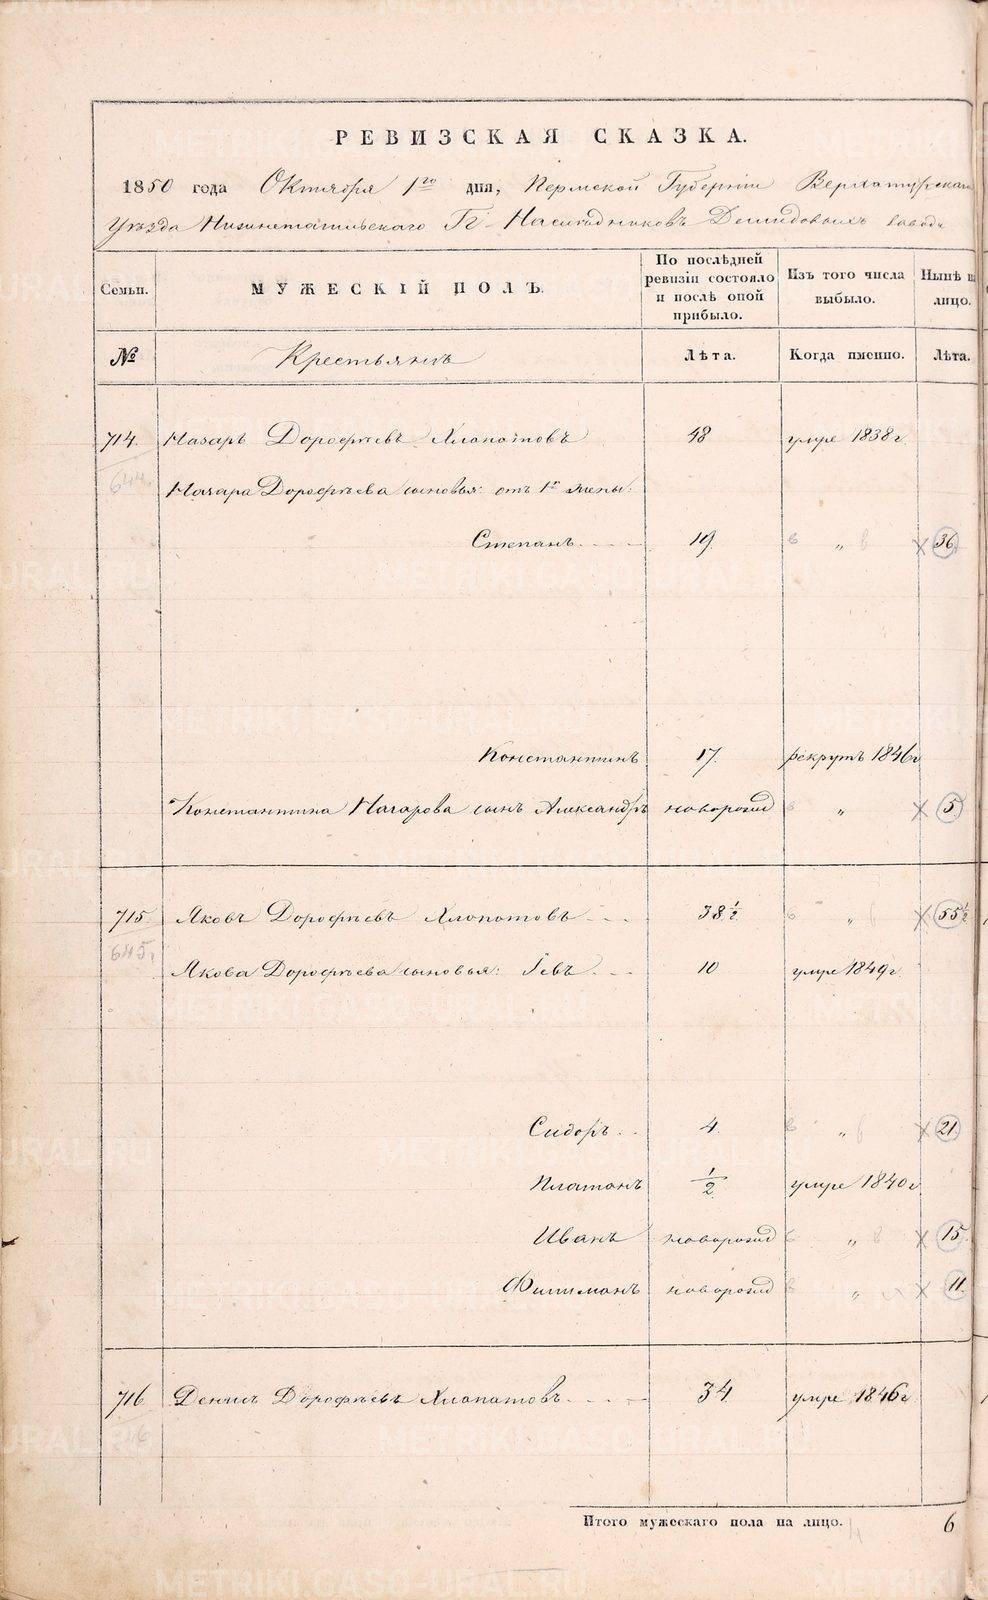 РЕВИЗСКАЯ СКАЗКА.
1850 года Октября 1го дня, Пермской Губерніи Верхотурскаго
Уѣзда Нижнетагильскаго Гг. Наслѣдниковъ Демидовыхъ завода
Семьи. МУЖЕСКІЙ ПОЛЪ. По послѣдней ревизіи состояло и послѣ оной прибыло. Изъ того числа выбыло. Нынѣ на лицо.
№ Крестьянъ Лѣта. Когда именно. Лѣта.
714. Назаръ Дорофѣевъ Хлопотовъ 48 умре 1838 г.
644. Назара Дорофѣева сыновья: отъ 1й жены:
Степанъ 19. „ 36.
Константинъ 17. рекрутъ 1846 г
Константина Назарова сынъ Александръ новорожд „ 5.
715. Яковъ Дорофѣевъ Хлопотовъ 38 ½ „ 55 ½
645. Якова Дорофѣева сыновья: Іевъ 10 умре 1849 г.
Сидоръ 4. „ 21.
Платонъ ½ умре 1840 г
Иванъ новорожд „ 15.
Филимонъ новорожд „ 11.
716. Денисъ Дорофѣевъ Хлопотовъ 34 умре 1846 г
Итого мужескаго пола на лицо. 6
METRIKI.GASO-URAL.RU